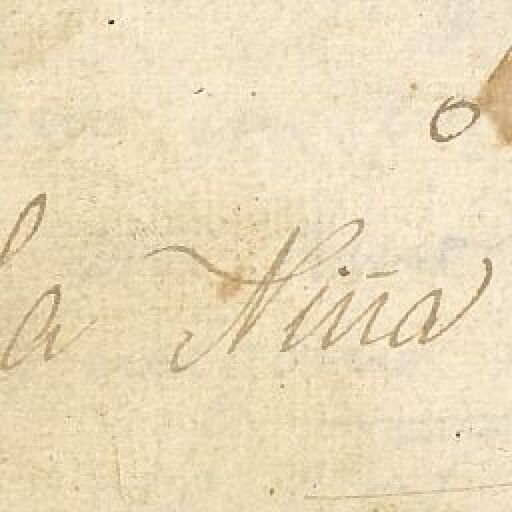 o
la Niña